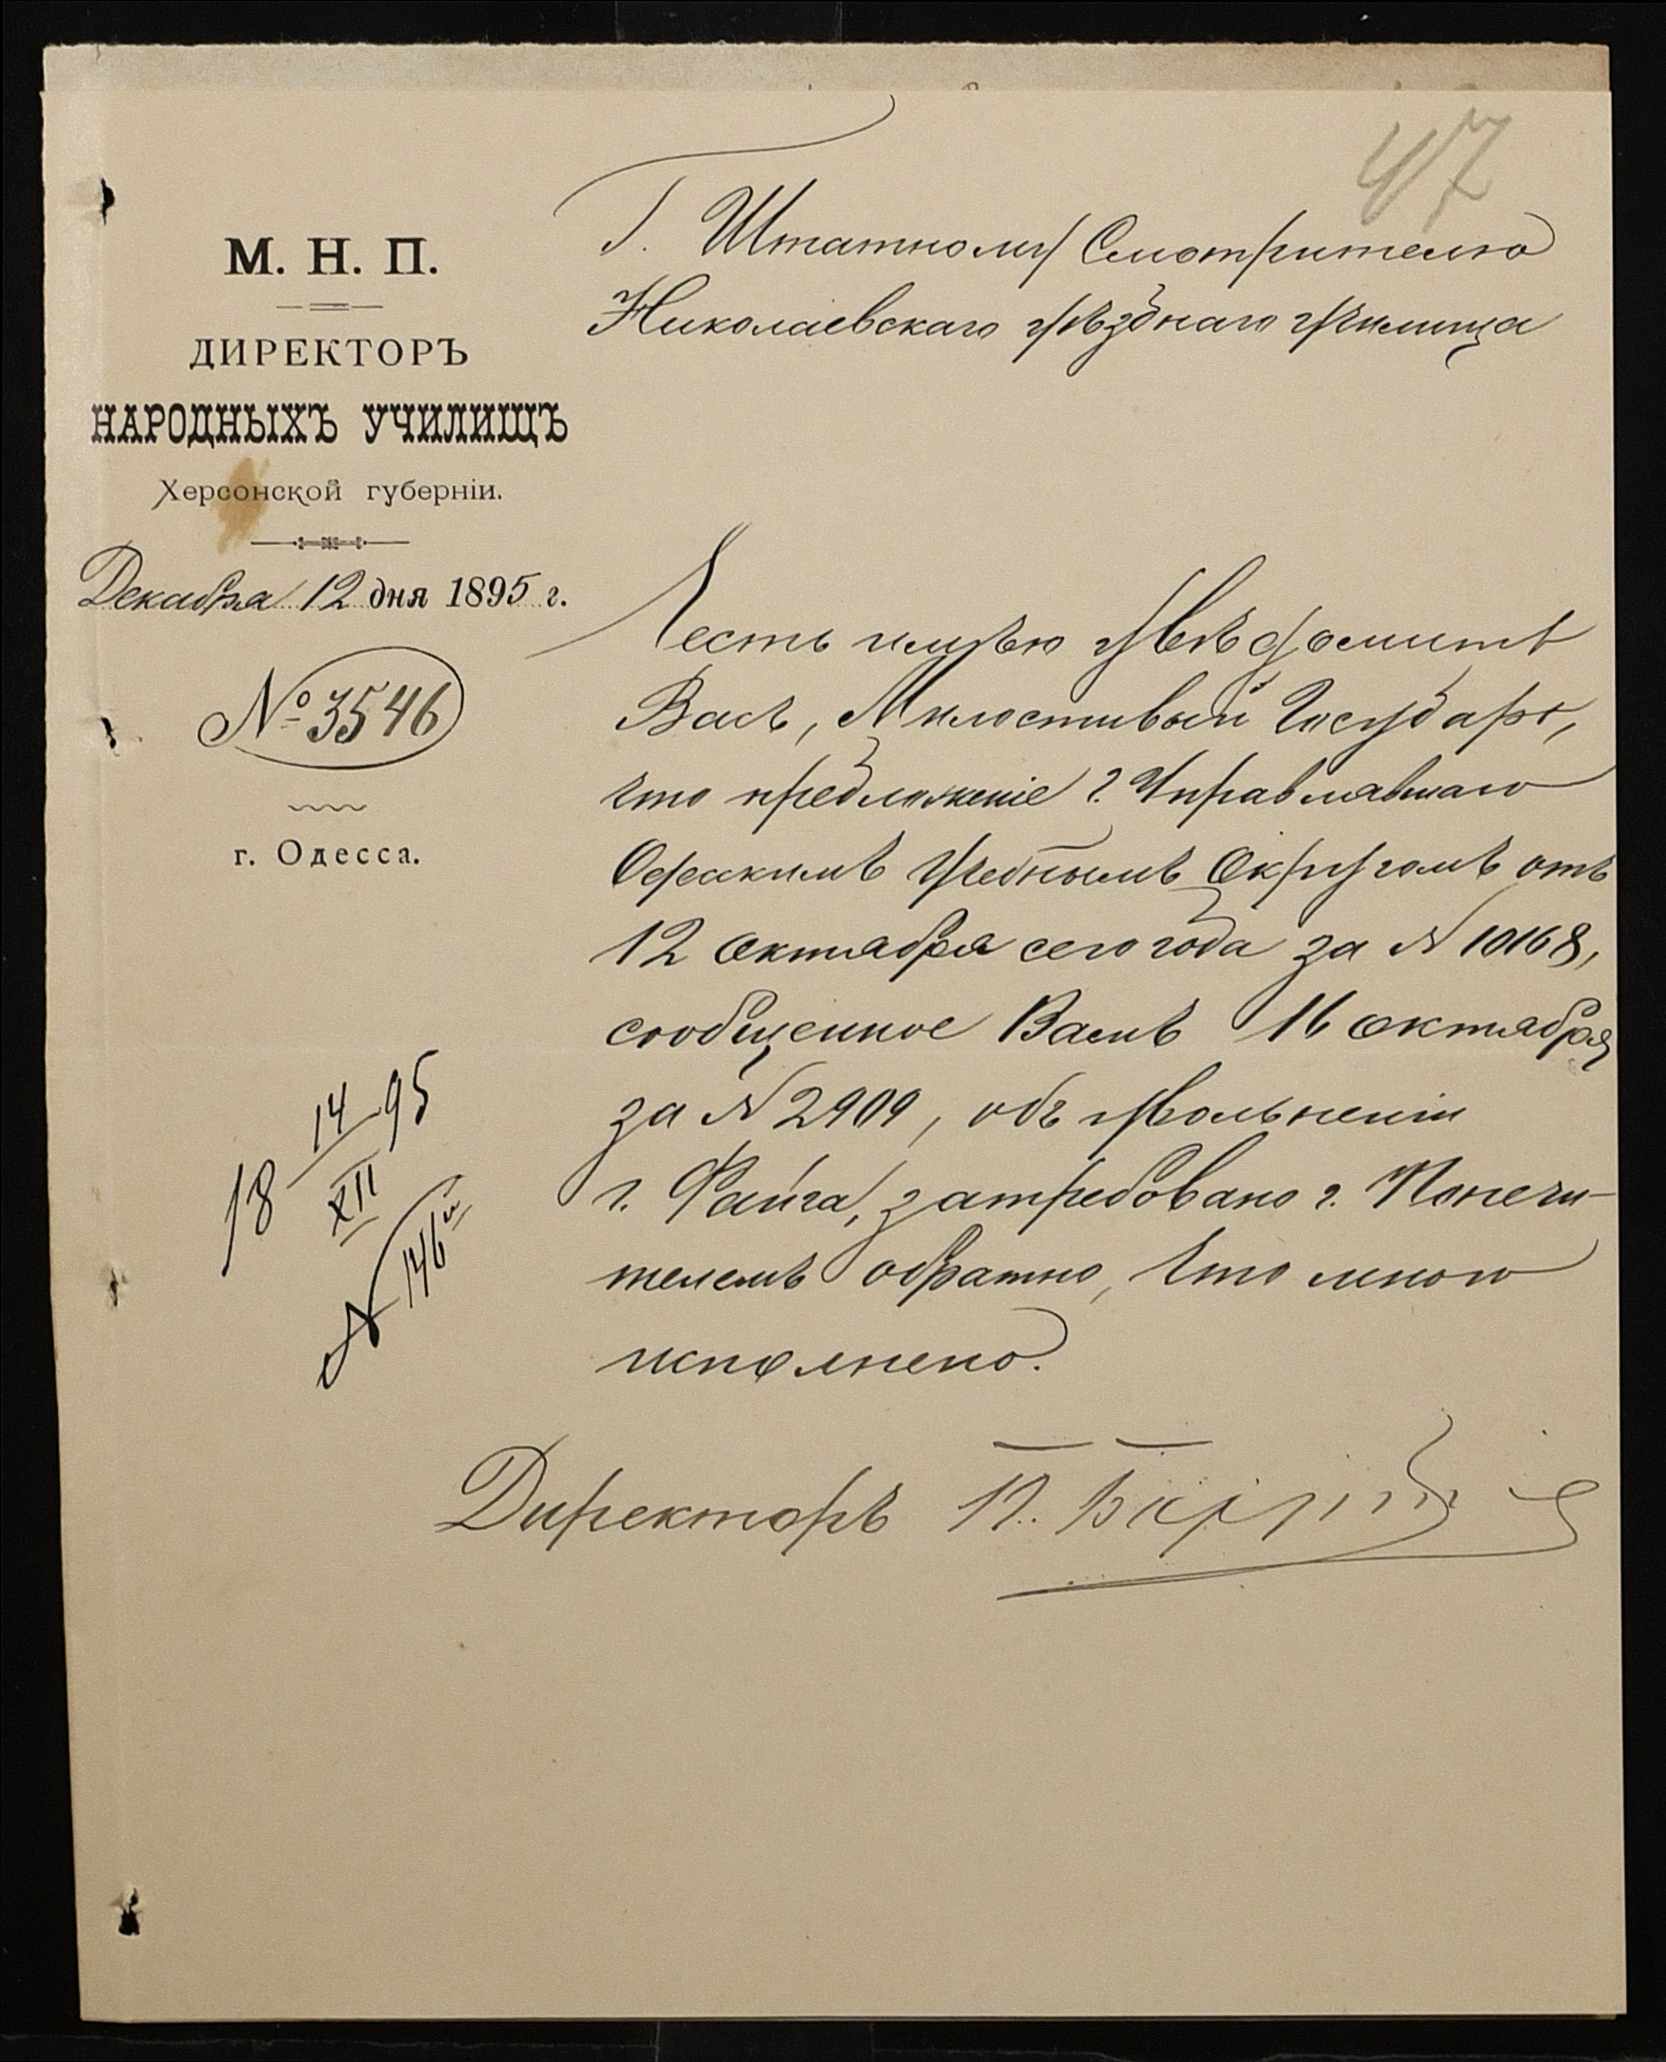 47
М. Н. П.
ДИРЕКТОРЪ
НАРОДНЫХЪ УЧИЛИЩЪ
Херсонской губерніи.
Декабря 12 дня 1895 г.
№ 3546
г. Одесса.
Г. Штатному Смотрителю
Николаевскаго уѣзднаго училища
Честь имѣю увѣдомить
Васъ, Милостивый Государь,
что предложеніе г. Управлявшаго
Одесскимъ Учебнымъ Округомъ отъ
12 октября сего года за № 10168,
сообщенное Вамъ 16 октября
за № 2909, объ увольненіи
г. Файга, затребовано г. Попечи-
телемъ обратно, что мною
исполнено.
18 14/XII 95
№ 146й
Директоръ